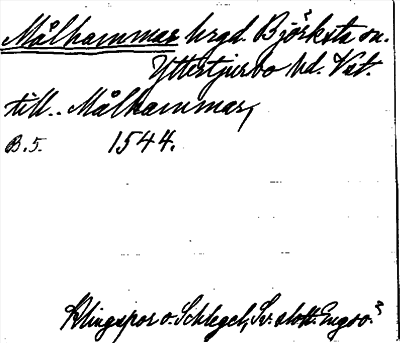 Målhammar hrgd. Björksta sn.
Yttertjurbo hd. Vst.
till.. Målhammar,
B. 5. 1544.
Klingspor o. Schlegel, Sv. slott. Engsö.